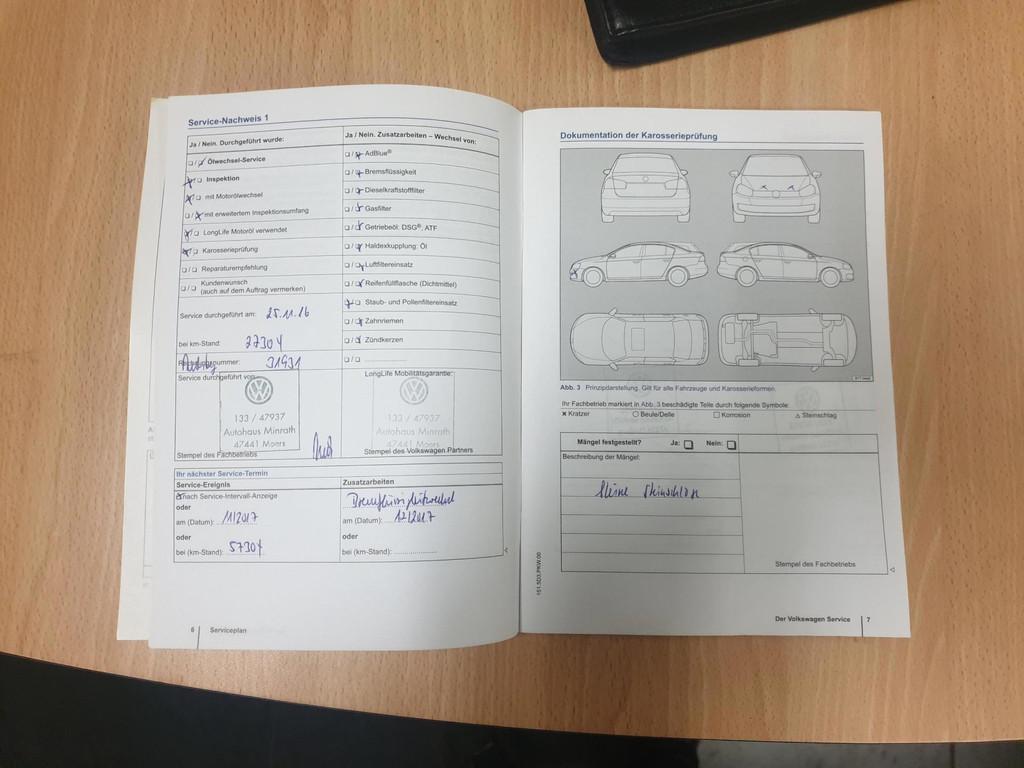 Service-Nachweis 1
Ja / Nein. Durchgeführt wurde:
❑ / ❑ Ölwechsel-Service
❑ / ❑ Inspektion
❑ / ❑ mit Motorölwechsel
❑ / ❑ mit erweitertem Inspektionsumfang
❑ / ❑ LongLife Motoröl verwendet
❑ / ❑ Karosserieprüfung
❑ / ❑ Reparaturempfehlung
❑ / ❑ Kundenwunsch
(auch auf dem Auftrag vermerken)
Service durchgeführt am: 25.11.16
bei km-Stand: 27304
31931
Service durchgeführt von:
133 / 47937
Autohaus Minrath
47441 Moers
Stempel des Fachbetriebs
Ja / Nein. Zusatzarbeiten – Wechsel von:
❑ / ❑ AdBlue®
❑ / ❑ Bremsflüssigkeit
❑ / ❑ Dieselkraftstofffilter
❑ / ❑ Gasfilter
❑ / ❑ Getriebeöl: DSG®, ATF
❑ / ❑ Haldexkupplung: Öl
❑ / ❑ Luftfiltereinsatz
❑ / ❑ Reifenfüllflasche (Dichtmittel)
❑ / ❑ Staub- und Pollenfiltereinsatz
❑ / ❑ Zahnriemen
❑ / ❑ Zündkerzen
❑ / ❑ ....................
LongLife Mobilitätsgarantie:
133 / 47937
Autohaus Minrath
47441 Moers
Stempel des Volkswagen Partners
Ihr nächster Service-Termin
Service-Ereignis
nach Service-Intervall-Anzeige
oder
am (Datum): 11/2017
oder
bei (km-Stand): 57304
Zusatzarbeiten
Bremsflüssigkeitwechsel
am (Datum): 12/2017
oder
bei (km-Stand): ....................
6 Serviceplan
Dokumentation der Karosserieprüfung
Abb. 3 Prinzipdarstellung. Gilt für alle Fahrzeuge und Karosserieformen.
Ihr Fachbetrieb markiert in Abb. 3 beschädigte Teile durch folgende Symbole:
✕ Kratzer ○ Beule/Delle □ Korrosion △ Steinschlag
Mängel festgestellt? Ja: ❑ Nein: ❑
Beschreibung der Mängel:
Stempel des Fachbetriebs
151.5D3.PKW.00
Der Volkswagen Service 7